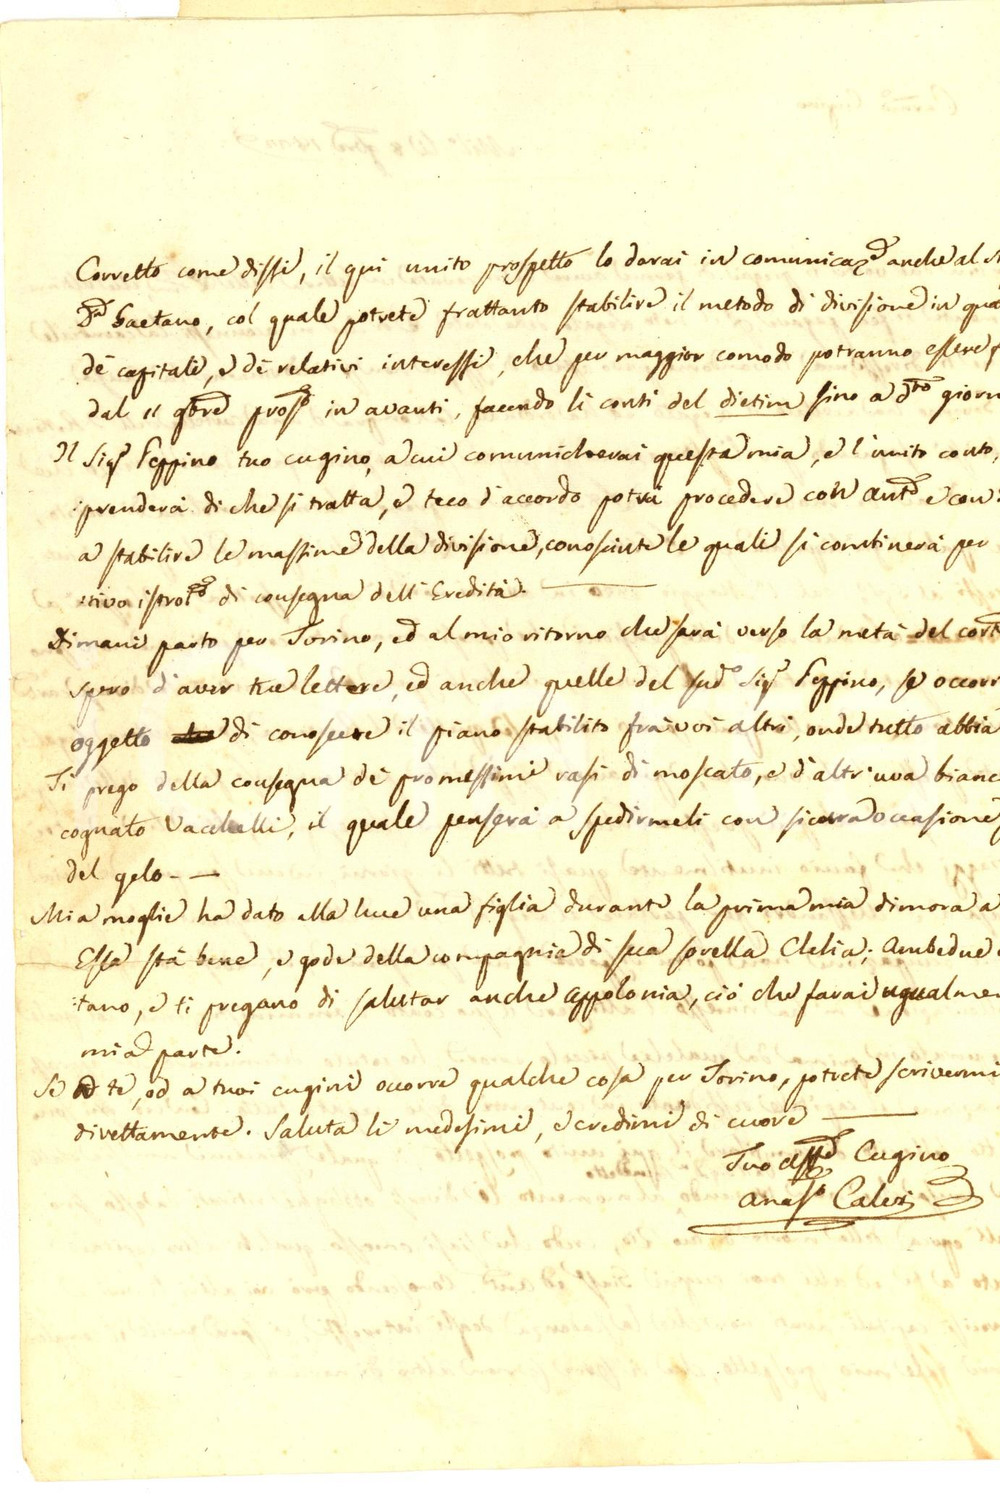 Corretto come dissi, il qui unito prospetto lo darai in comunicaz.e anche al
D.n Gaetano, col quale potrete frattanto stabilire il metodo di divisione in
de' capitali, e de' relativi interessi, che per maggior comodo potranno essere
dal 11 9bre pross.o in avanti, facendo li conti del dietim sino a d.tto giorn
Il Sig.r Peppino tuo cugino, a cui comunicherai questa mia, e l'unito conto,
:prenderà di che si tratta, e teco d'accordo potrà procedere con ant.o e con:
a stabilire le massime della divisione, conosciute le quali si continerà per
:tivo istrom.to di consegna dell'Eredità.
Dimani parto per Torino, ed al mio ritorno che sarà verso la metà del corr
spero d'aver tue lettere, ed anche quelle del sud.o Sig.r Peppino, se occorr
oggetto di conoscere il piano stabilito frà voi altri, onde tutto abbia
Ti prego della consegna de' promessimi vasi di moscato, e d'altr'uva bianc
cognato Vacchelli, il quale penserà a spedirmeli con sicura occasione
del gelo - —
Mia moglie ha dato alla luce una figlia durante la prima mia dimora a
Essa stà bene, e gode della compagnia di sua sorella Clelia; Ambedue
:tano, e ti pregano di salutar anche Appolonia, ciò che farai ugualme
mia parte.
Se a te, od a tuoi cugini occorre qualche cosa per Torino, potrete scrivermi
direttamente. Saluta li medesimi, e credimi di cuore —
Tuo aff.mo Cugino
Anas.o Calvi